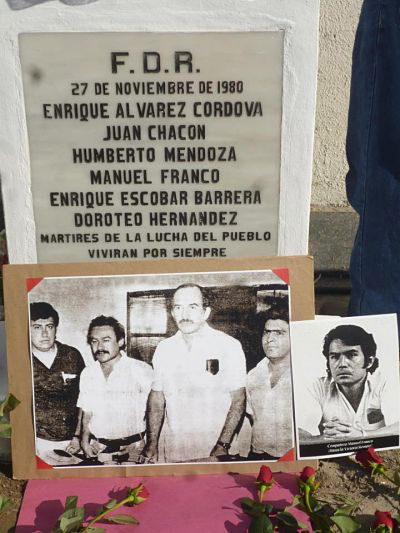 F.D.R.
27 DE NOVIEMBRE DE 1980
ENRIQUE ALVAREZ CORDOVA
JUAN CHACON
HUMBERTO MENDOZA
MANUEL FRANCO
ENRIQUE ESCOBAR BARRERA
DOROTEO HERNANDEZ
MARTIRES DE LA LUCHA DEL PUEBLO
VIVIRAN POR SIEMPRE
Compañero Manuel Franco
¡Hasta la Victoria Siempre!